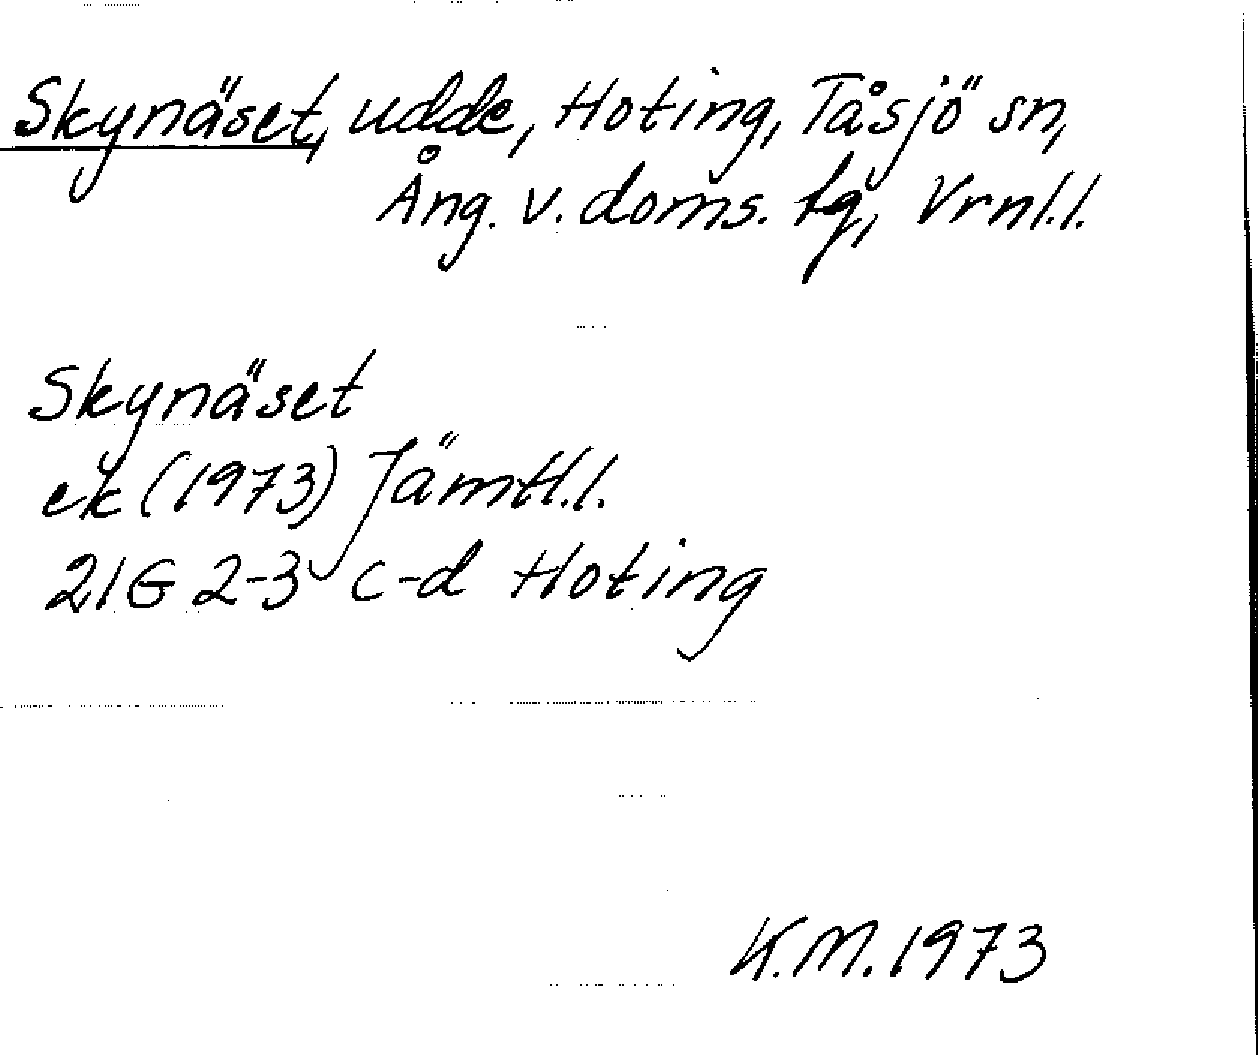 Skynäset, udde, Hoting, Tåsjö sn,
Ång. v. doms. tg, Vrnl.l.
Skynäset
ek (1973) Jämtl.l.
21G 2-3 c-d Hoting
K.M. 1973